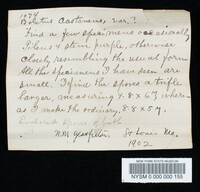 1074
Boletus Castaneus, var.?
Find a few specimens occasionally
Pileus & stem purple, otherwise
closely resembling the usual form
All the specimens I have seen are
small. I find the spores a trifle
larger, measuring 8.8 x 6.7 where-
as I make the ordinary, 8.8 x 5.7.
Enclosed spores of both
N.M. Glatfelter, St Louis Mo.
1902.
NEW YORK STATE MUSEUM
NYSM 0 000 000 155